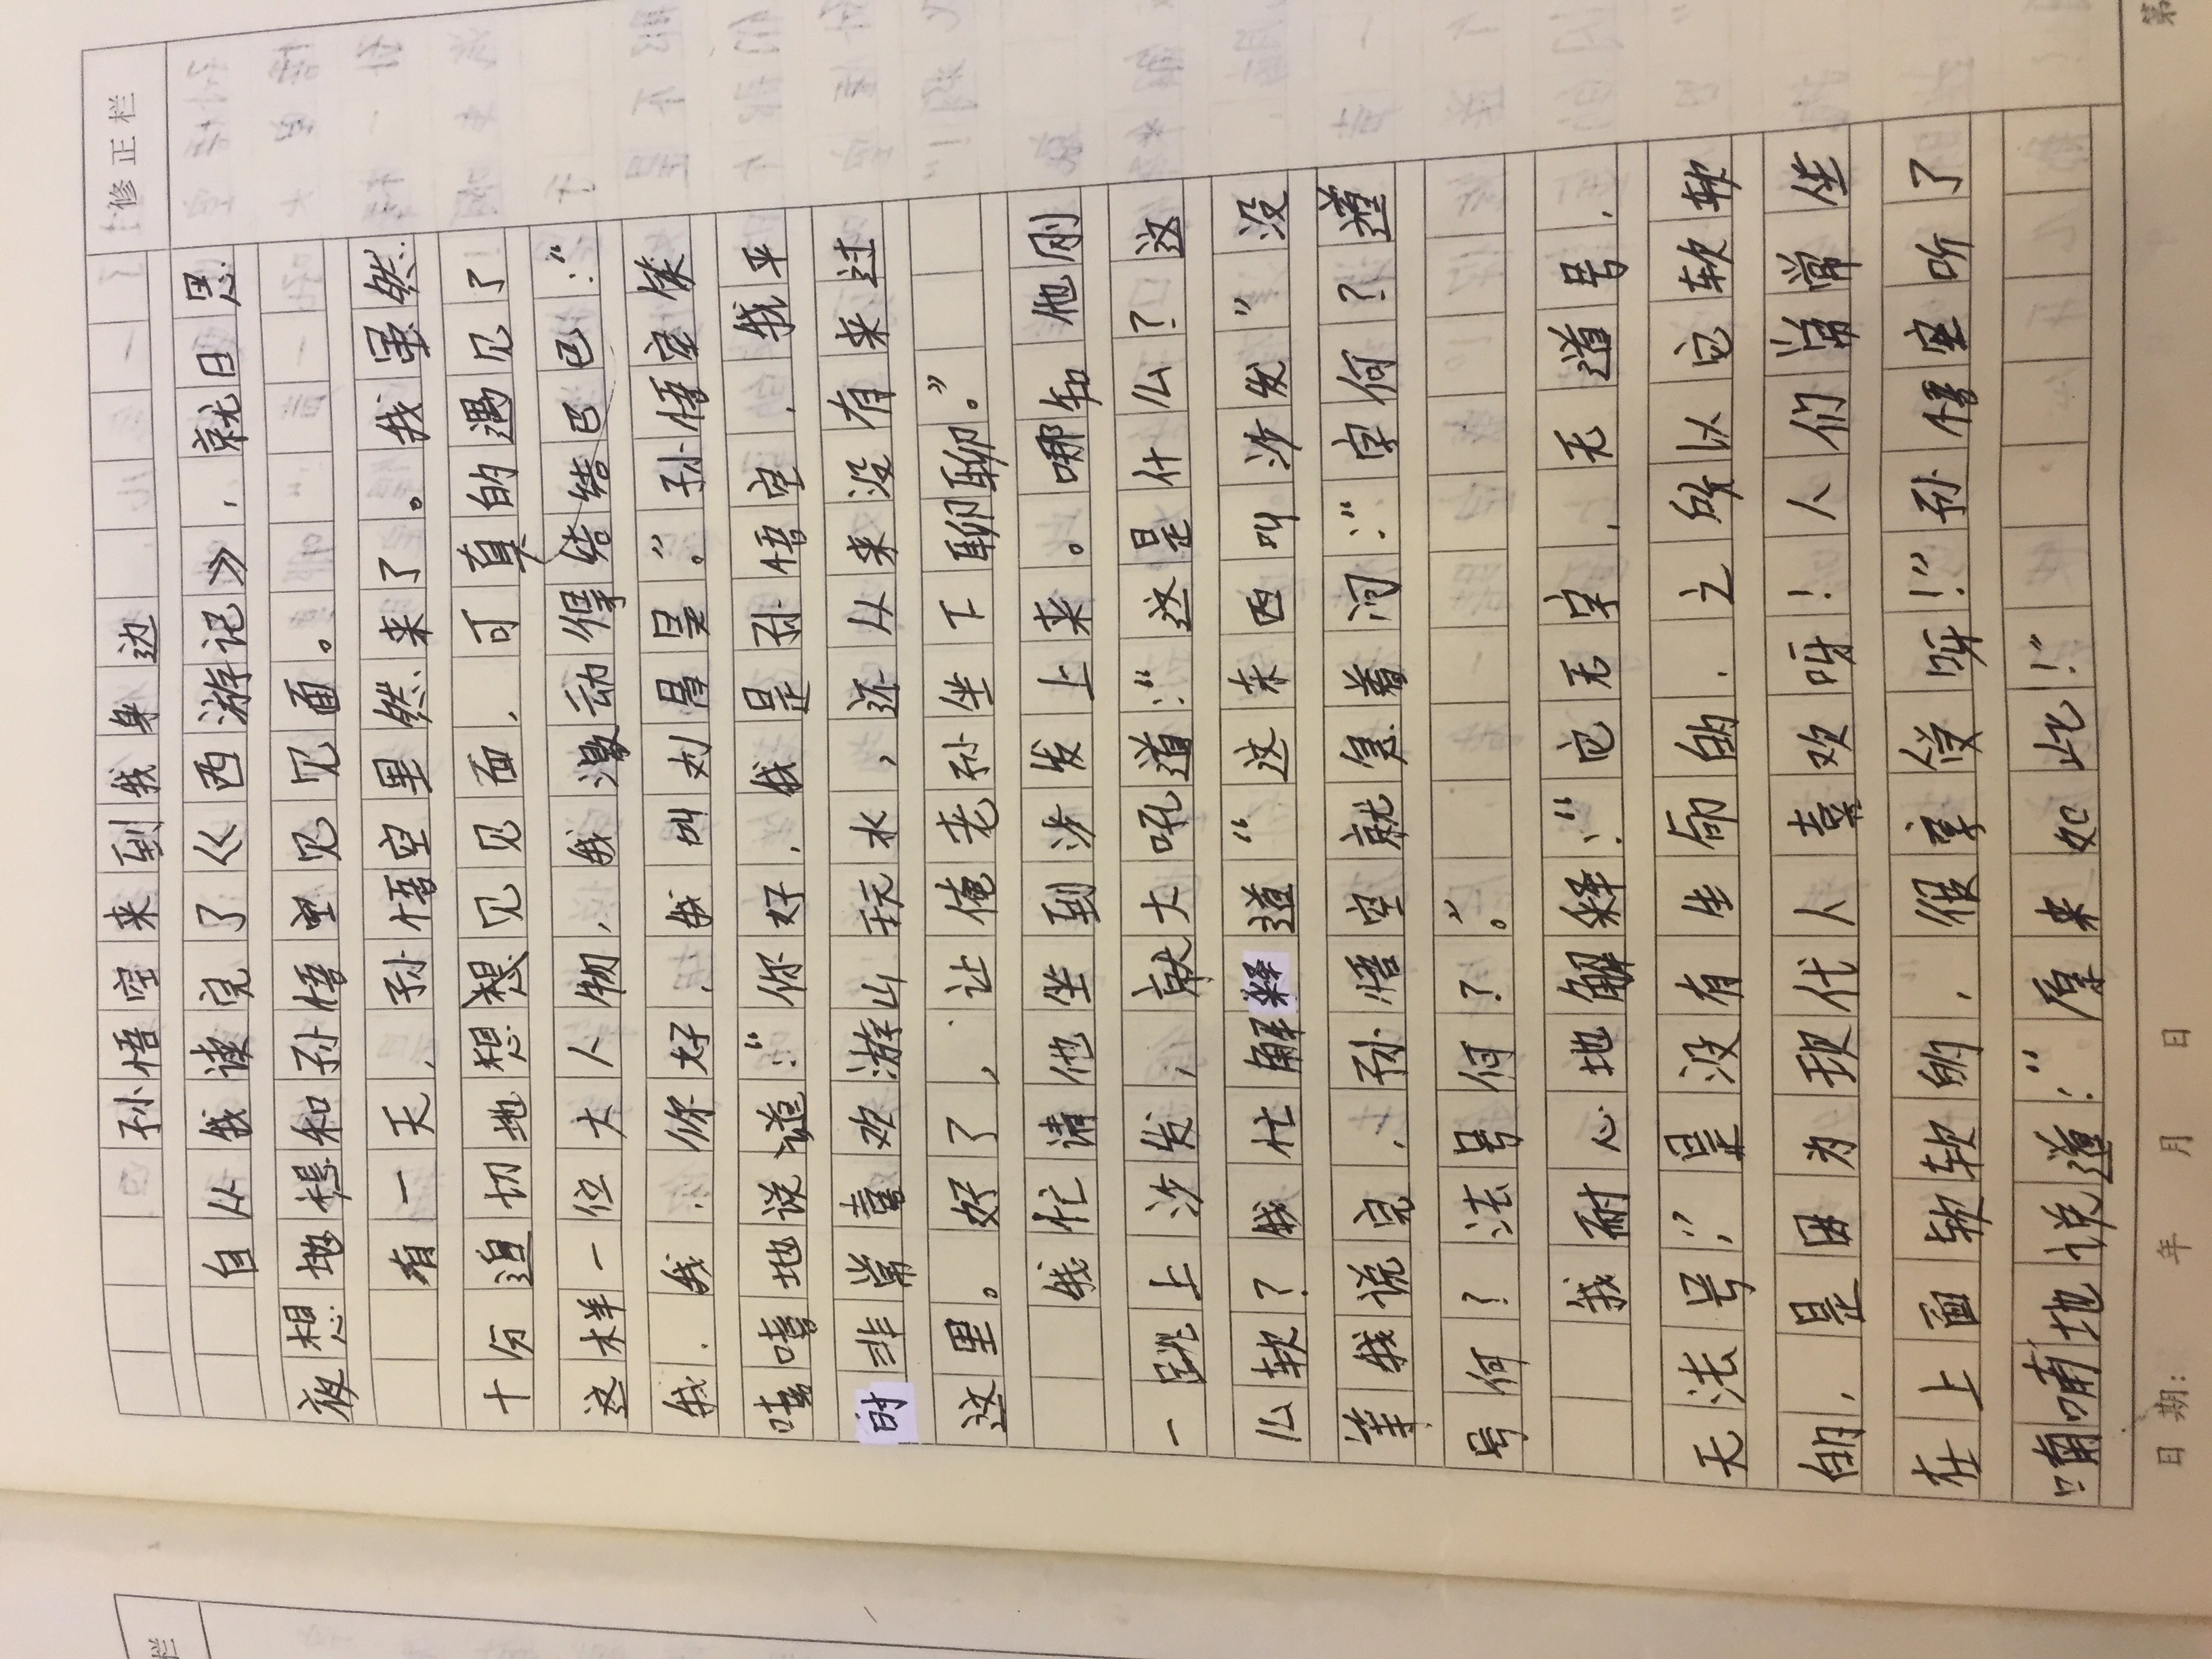 修正栏
孙悟空来到我身边
自从我读完了《西游记》，就日思
夜想地想和孙悟空见见面。
有一天，孙悟空果然来了。我虽然
十分迫切地想想见见面，可真的遇见了
这样一位大人物，我激动得结结巴巴：“
我、我、你好，我叫刘昌昊。”孙悟空笑
嘻嘻地说道：“你好，我是孙悟空，我平
时非常喜欢游山玩水，还从来没有来过
这里。好了，让俺老孙坐下聊聊。”
我忙请他坐到沙发上来。哪知他刚
一跳上沙发，就大吼道：“这是什么？这
么软？我忙解释道“这东西叫沙发”没
等我说完，孙悟空就急着问：“字何？道
号何？法号何？”。
我耐心地解释：“它无字，无道号，
无法号，是没有生命的，之所以它软软
的，是因为现代人喜欢呀！人们常常坐
在上面软软的，很享受呀！”孙悟空听了
喃喃地说道：“原来如此！”
日期： 年 月 日
第
栏